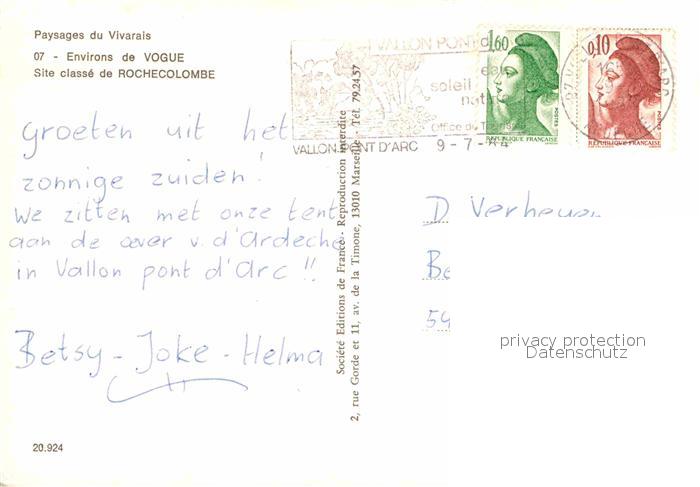 Paysages du Vivarais
07 - Environs de VOGUE
Site classé de ROCHECOLOMBE
groeten uit het
zonnige zuiden!
We zitten met onze tent
aan de oever v. d'Ardeche
in Vallon pont d'Arc !!
Betsy - Joke - Helma
20.924
Société Editions de France - Reproduction interdite
2, rue Gorde et 11, av. de la Timone, 13010 Marseille - Tél. 79.24.57
VALLON PONT d'
eau
soleil
Office du
VALLON PONT D'ARC 9-7-84
1,60
POSTES
REPUBLIQUE FRANÇAISE
0,10
POSTES
REPUBLIQUE FRANÇAISE
D Verheuen
Be
54
privacy protection
Datenschutz